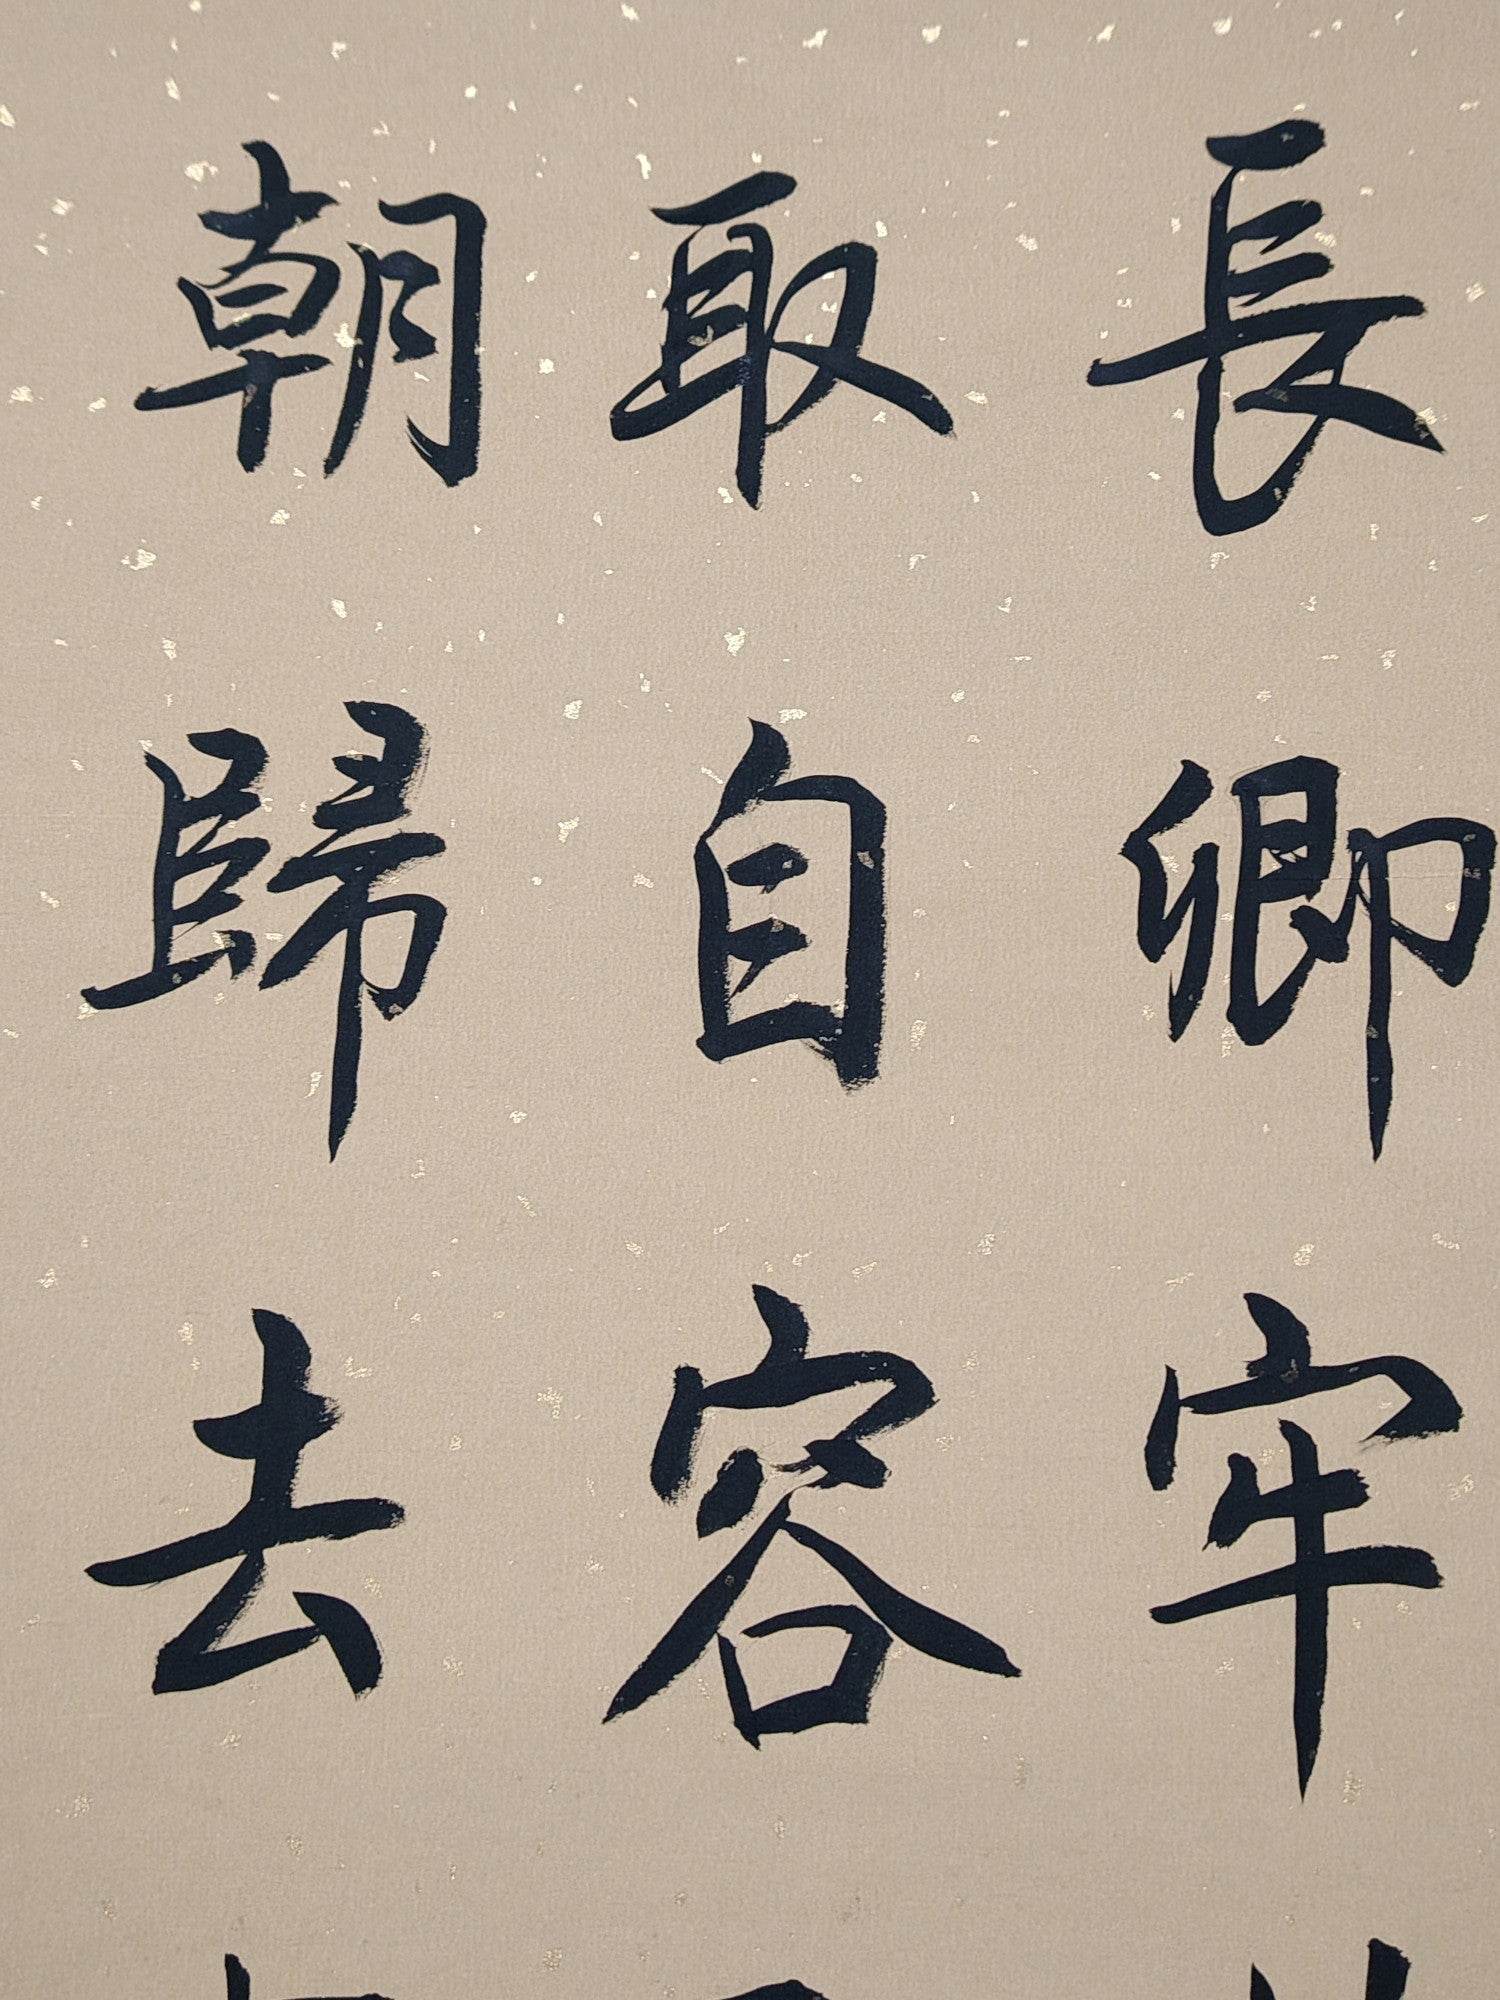 長卿牢
取自容
朝歸去